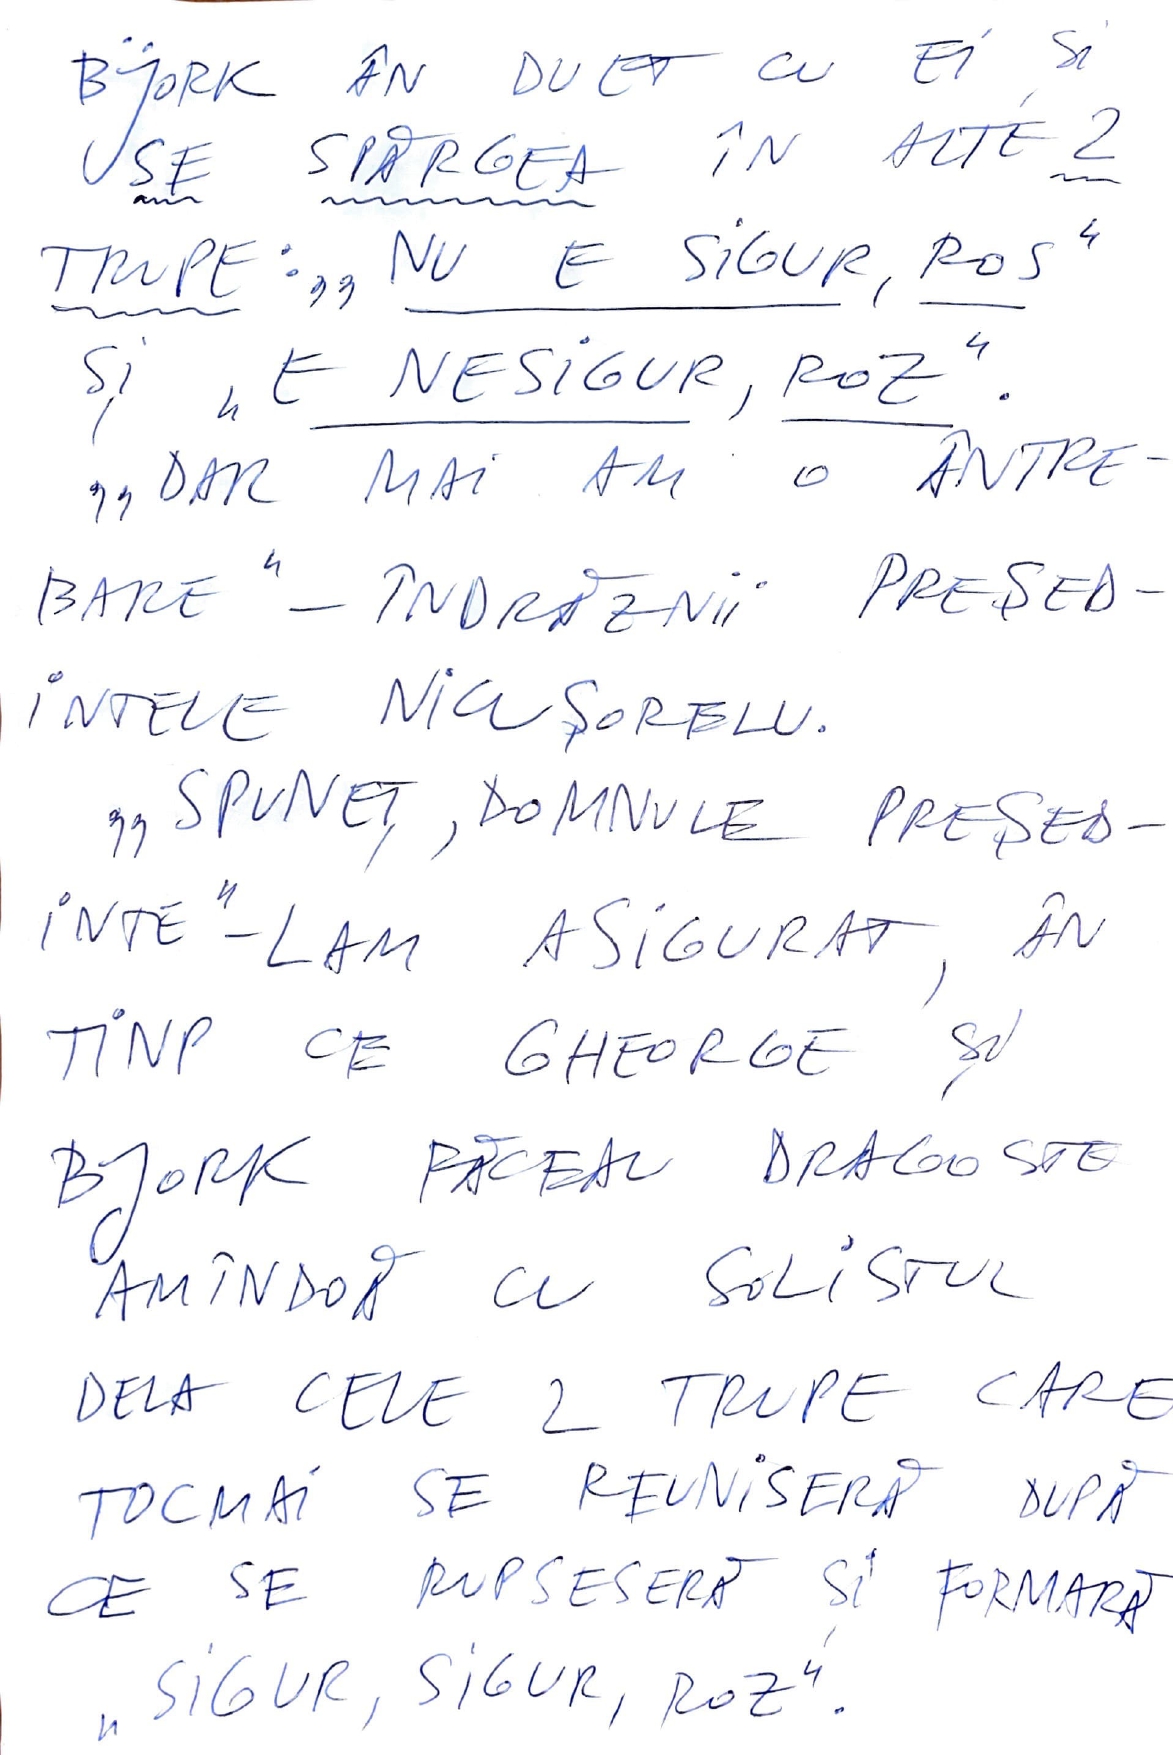 BJÖRK ÂN DUET CU EI ȘI
SE SPĂRGEA ÎN ALTE 2
TRUPE: „NU E SIGUR, ROS“
ȘI „E NESIGUR, ROZ“.
„DAR MAI AM O ÂNTRE-
BARE“ – ÎNDRĂZNII PREȘED-
INTELE NICUȘORELU.
„SPUNEȚ, DOMNULE PREȘED-
INTE“ – LAM ASIGURAT, ÂN
TINP CE GHEORGE ȘI
BJORK FĂCEAU DRAGOSTE
AMÎNDOĂ CU SOLISTUL
DELA CELE 2 TRUPE CARE
TOCMAI SE REUNISERĂ DUPĂ
CE SE RUPSESERĂ ȘI FORMARĂ
„SIGUR, SIGUR, ROZ“.